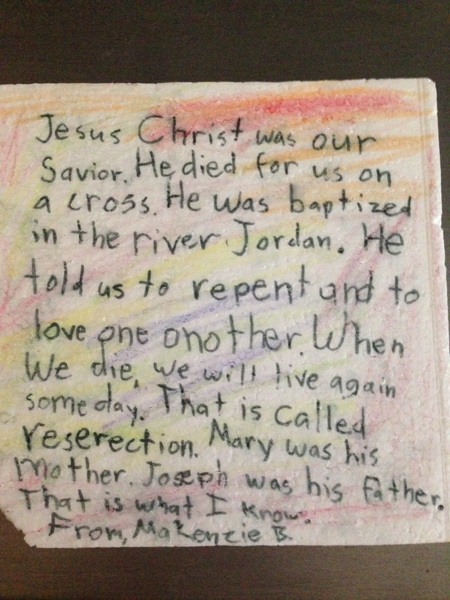 Jesus Christ was our
Savior. He died for us on
a cross. He was baptized
in the river Jordan. He
told us to repent and to
love one onother. When
We die, we will live again
someday. That is called
reserection. Mary was his
mother. Joseph was his father.
That is what I know.
From, Makenzie B.